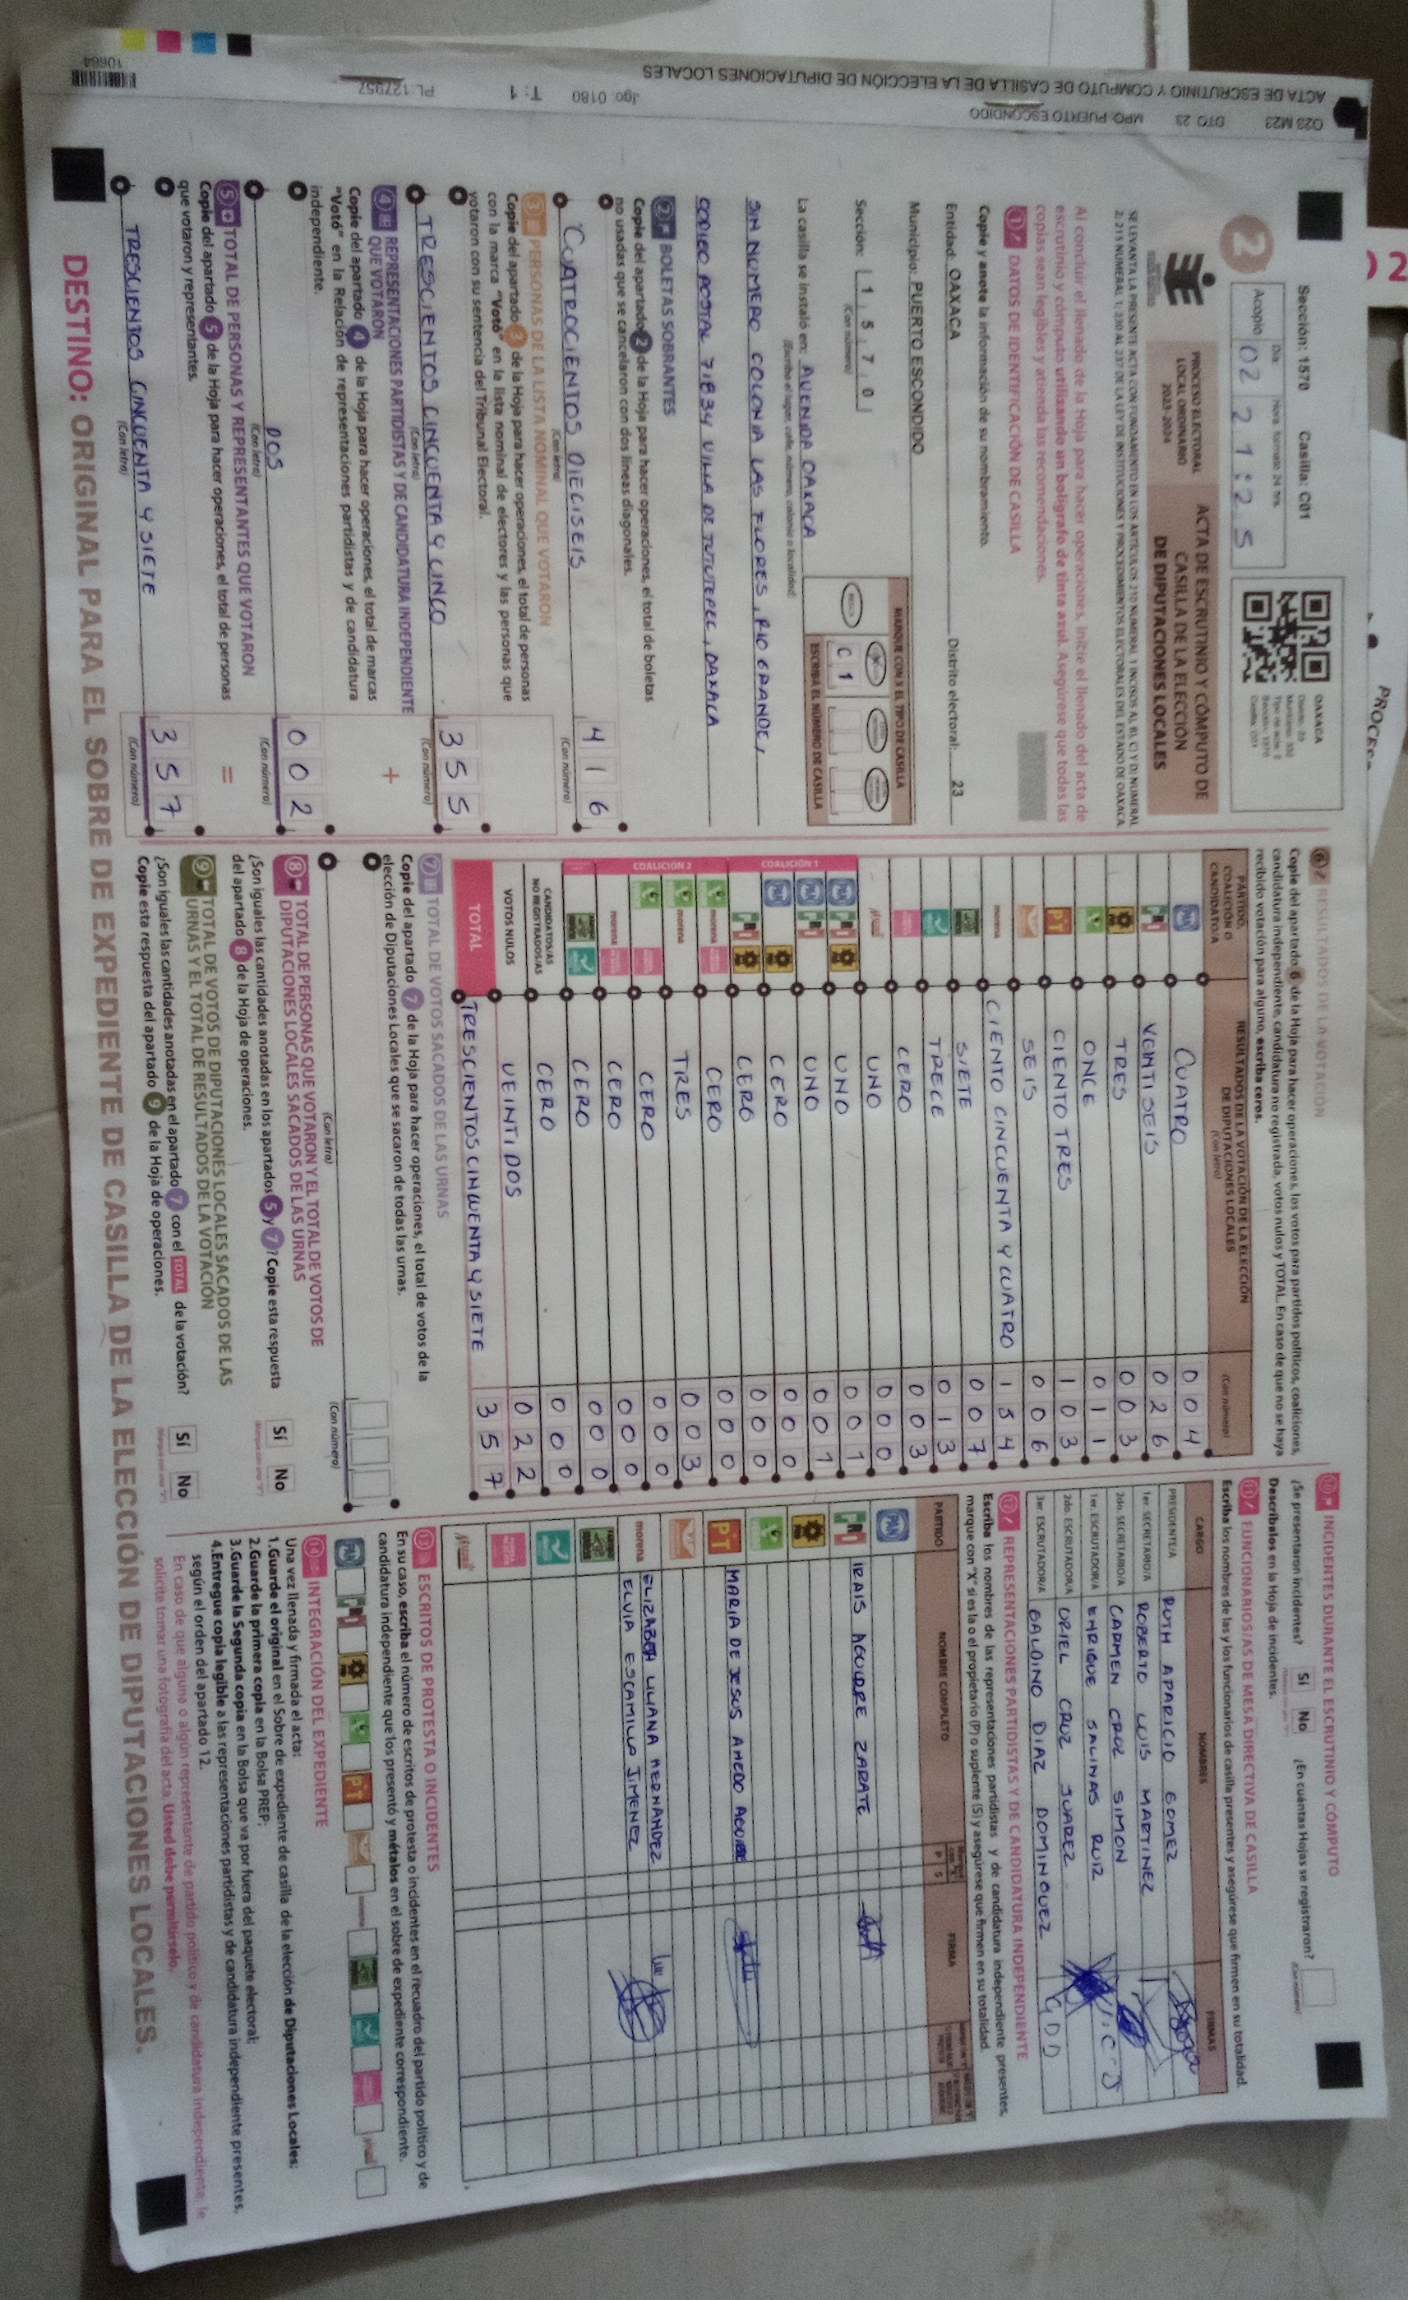 PROCES
2
ACTA DE ESCRUTINIO Y CÓMPUTO DE CASILLA DE LA ELECCIÓN DE DIPUTACIONES LOCALES
O23 M23 DTO 23 MPO. PUERTO ESCONDIDO
Jgo: 0180 T: 1 PL 127957
10664
Sección: 1570 Casilla: C01
2
Día Hora formato 24 hrs.
Acopio 02 21:25
OAXACA
PROCESO ELECTORAL
LOCAL ORDINARIO
2023-2024
ACTA DE ESCRUTINIO Y CÓMPUTO DE
CASILLA DE LA ELECCIÓN
DE DIPUTACIONES LOCALES
Al concluir el llenado de la Hoja para hacer operaciones, inicie el llenado del acta de
escrutinio y cómputo utilizando un bolígrafo de tinta azul. Asegúrese que todas las
copias sean legibles y atienda las recomendaciones.
1 DATOS DE IDENTIFICACIÓN DE CASILLA
Copie y anote la información de su nombramiento.
Entidad: OAXACA Distrito electoral: 23
Municipio: PUERTO ESCONDIDO
Sección: 1 5 7 0
(Con número)
MARQUE CON X EL TIPO DE CASILLA
C 1
ESCRIBA EL NÚMERO DE CASILLA
La casilla se instaló en: AVENIDA OAXACA
(Escriba el lugar, calle, número, colonia o localidad)
SIN NUMERO COLONIA LAS FLORES, RIO GRANDE,
CODIGO POSTAL 71834 VILLA DE TUTUTEPEC, OAXACA
2 BOLETAS SOBRANTES
Copie del apartado 2 de la Hoja para hacer operaciones, el total de boletas
no usadas que se cancelaron con dos líneas diagonales.
CUATROCIENTOS DIECISEIS 4 1 6
(Con letra) (Con número)
3 PERSONAS DE LA LISTA NOMINAL QUE VOTARON
Copie del apartado 3 de la Hoja para hacer operaciones, el total de personas
con la marca "Votó" en la lista nominal de electores y las personas que
votaron con su sentencia del Tribunal Electoral.
TRESCIENTOS CINCUENTA Y CINCO 3 5 5
(Con letra) (Con número)
4 REPRESENTACIONES PARTIDISTAS Y DE CANDIDATURA INDEPENDIENTE
QUE VOTARON
+
Copie del apartado 4 de la Hoja para hacer operaciones, el total de marcas
"Votó" en la Relación de representaciones partidistas y de candidatura
independiente.
DOS 0 0 2
(Con letra) (Con número)
5 TOTAL DE PERSONAS Y REPRESENTANTES QUE VOTARON
=
Copie del apartado 5 de la Hoja para hacer operaciones, el total de personas
que votaron y representantes.
TRESCIENTOS CINCUENTA Y SIETE 3 5 7
(Con letra) (Con número)
6 RESULTADOS DE LA VOTACIÓN
Copie del apartado 6 de la Hoja para hacer operaciones, los votos para partidos políticos, coaliciones,
candidatura independiente, candidatura no registrada, votos nulos y TOTAL. En caso de que no se haya
recibido votación para alguno, escriba ceros.
PARTIDO,
COALICIÓN O
CANDIDATO/A
RESULTADOS DE LA VOTACIÓN DE LA ELECCIÓN
DE DIPUTACIONES LOCALES
(Con letra)
(Con número)
PAN CUATRO 0 0 4
PRI VEINTI SEIS 0 2 6
PRD TRES 0 0 3
ONCE 0 1 1
PT CIENTO TRES 1 0 3
SEIS 0 0 6
morena CIENTO CINCUENTA Y CUATRO 1 5 4
SIETE 0 0 7
TRECE 0 1 3
CERO 0 0 3
UNO 0 0 0
COALICIÓN 1
PAN PRI PRD UNO 0 0 1
PAN PRI UNO 0 0 1
PAN PRD CERO 0 0 0
PRI PRD CERO 0 0 0
COALICIÓN 2
morena CERO 0 0 0
morena TRES 0 0 3
CERO 0 0 0
morena CERO 0 0 0
CERO 0 0 0
CANDIDATOS/AS
NO REGISTRADOS/AS CERO 0 0 0
VOTOS NULOS VEINTI DOS 0 2 2
TOTAL TRESCIENTOS CINCUENTA Y SIETE 3 5 7
7 TOTAL DE VOTOS SACADOS DE LAS URNAS
Copie del apartado 7 de la Hoja para hacer operaciones, el total de votos de la
elección de Diputaciones Locales que se sacaron de todas las urnas.
(Con letra) (Con número)
8 TOTAL DE PERSONAS QUE VOTARON Y EL TOTAL DE VOTOS DE
DIPUTACIONES LOCALES SACADOS DE LAS URNAS
¿Son iguales las cantidades anotadas en los apartados 5 y 7? Copie esta respuesta
del apartado 8 de la Hoja de operaciones.
Sí No
9 TOTAL DE VOTOS DE DIPUTACIONES LOCALES SACADOS DE LAS
URNAS Y EL TOTAL DE RESULTADOS DE LA VOTACIÓN
¿Son iguales las cantidades anotadas en el apartado 7 con el TOTAL de la votación?
Copie esta respuesta del apartado 9 de la Hoja de operaciones.
Sí No
10 INCIDENTES DURANTE EL ESCRUTINIO Y CÓMPUTO
¿Se presentaron incidentes? Sí No ¿En cuántas Hojas se registraron?
Descríbalos en la Hoja de incidentes.
11 FUNCIONARIOS/AS DE MESA DIRECTIVA DE CASILLA
Escriba los nombres de las y los funcionarios de casilla presentes y asegúrese que firmen en su totalidad.
CARGO NOMBRES FIRMAS
PRESIDENTE/A RUTH APARICIO GOMEZ
1er. SECRETARIO/A ROBERTO LUIS MARTINEZ
2do. SECRETARIO/A CARMEN CRUZ SIMON
1er. ESCRUTADOR/A ENRIQUE SALINAS RUIZ
2do. ESCRUTADOR/A ORIEL CRUZ JUAREZ
3er. ESCRUTADOR/A BALDINO DIAZ DOMINGUEZ
12 REPRESENTACIONES PARTIDISTAS Y DE CANDIDATURA INDEPENDIENTE
Escriba los nombres de las representaciones partidistas y de candidatura independiente presentes,
marque con "X" si es la o el propietario (P) o suplente (S) y asegúrese que firmen en su totalidad.
PARTIDO NOMBRE COMPLETO P S FIRMA
PAN
PRI IRAIS AGUIRRE ZARATE
PRD
PT MARIA DE JESUS AMEDO
morena ELIZABETH LILIANA HERNANDEZ
ELVIA ESCAMILLA JIMENEZ
13 ESCRITOS DE PROTESTA O INCIDENTES
En su caso, escriba el número de escritos de protesta o incidentes en el recuadro del partido político y de
candidatura independiente que los presentó y métalos en el sobre de expediente correspondiente.
PAN PRI PRD PT
14 INTEGRACIÓN DEL EXPEDIENTE
Una vez llenada y firmada el acta:
1.Guarde el original en el Sobre de expediente de casilla de la elección de Diputaciones Locales;
2.Guarde la primera copia en la Bolsa PREP;
3.Guarde la Segunda copia en la Bolsa que va por fuera del paquete electoral;
4.Entregue copia legible a las representaciones partidistas y de candidatura independiente presentes,
según el orden del apartado 12.
En caso de que alguno o algún representante de partido político y de candidatura independiente, le
solicite tomar una fotografía del acta, Usted debe permitírselo.
DESTINO: ORIGINAL PARA EL SOBRE DE EXPEDIENTE DE CASILLA DE LA ELECCIÓN DE DIPUTACIONES LOCALES.